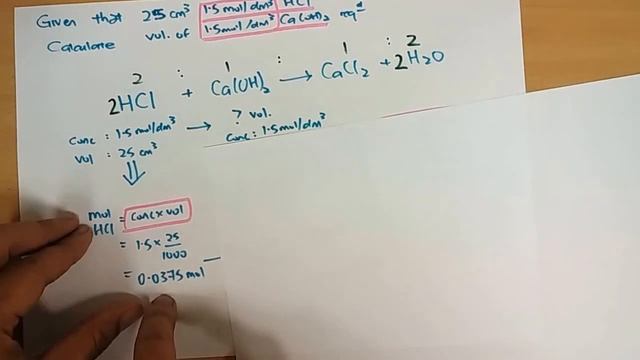 Given that 25cm³ 1.5mol/dm³ HCl
Calculate vol. of 1.5mol/dm³ Ca(OH)₂ reqᵈ
2 : 1 : 1 : 2
2HCl + Ca(OH)₂ → CaCl₂ + 2H₂O
conc : 1.5mol/dm³ → ? vol.
vol : 25 cm³ conc : 1.5mol/dm³
⇓
mol HCl = conc x vol
= 1.5 x 25/1000
= 0.0375 mol